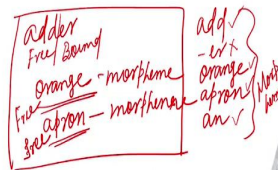 adder
Free Bound
orange - morpheme
Free
apron - morpheneme
free
add ✓
-er x
orange ✓
apron ✓
an ✓